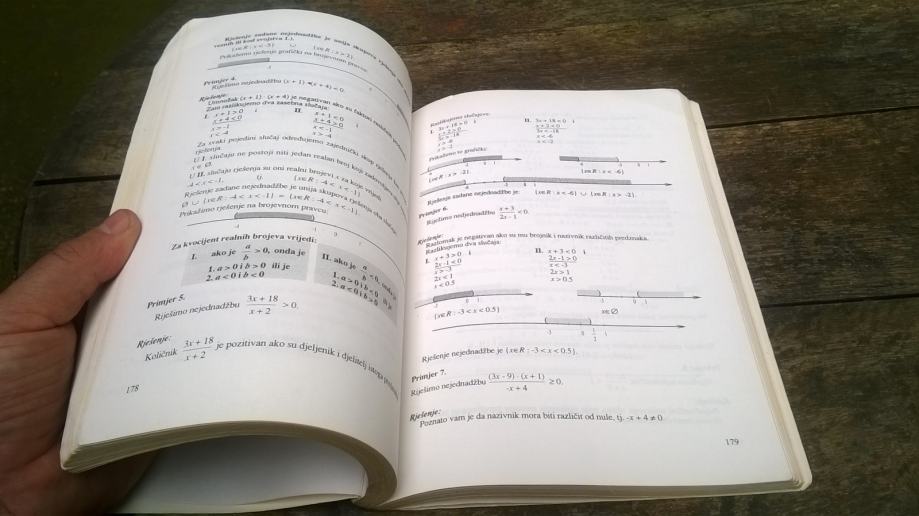 Rješenje zadane nejednadžbe je unija skupova rješenja
{x∈R : x<-5} ∪ {x∈R : x>2}
Prikažimo rješenje grafički na brojevnom pravcu:
Primjer 4.
Riješimo nejednadžbu (x+1)·(x+4)<0.
Rješenje:
Umnožak (x+1)·(x+4) je negativan ako su faktori različitih
Zato razlikujemo dva zasebna slučaja:
I. x+1>0 i
x+4<0
x>-1
x<-4
II. x+1<0 i
x+4>0
x<-1
x>-4
Za svaki pojedini slučaj određujemo zajednički skup
rješenja.
U I. slučaju ne postoji niti jedan realan broj koji
x∈∅.
U II. slučaju rješenja su oni realni brojevi x za koje vrijedi
-4<x<-1, tj. {x∈R : -4<x<-1}
Rješenje zadane nejednadžbe je unija skupova rješenja oba
∅ ∪ {x∈R : -4<x<-1} = {x∈R : -4<x<-1}.
Prikažimo rješenje na brojevnom pravcu:
-4 -1 0 1
Za kvocijent realnih brojeva vrijedi:
I. ako je a/b>0, onda je
1. a>0 i b>0 ili je
2. a<0 i b<0
II. ako je a/b<0, onda je
1. a>0 i b<0 ili je
2. a<0 i b>0
Primjer 5.
Riješimo nejednadžbu (3x+18)/(x+2) >0.
Rješenje:
Količnik (3x+18)/(x+2) je pozitivan ako su djeljenik i djelitelj istoga
178
Razlikujemo slučajeve:
I. 3x+18>0 i
x+2>0
3x>-18
x>-6
x>-2
II. 3x+18<0 i
x+2<0
3x<-18
x<-6
x<-2
Prikažimo to grafički:
{x∈R : x>-2}
{x∈R : x<-6}
Rješenje zadane nejednadžbe je: {x∈R : x<-6} ∪ {x∈R : x>-2}.
Primjer 6.
Riješimo nejednadžbu (x+3)/(2x-1) <0.
Rješenje:
Razlomak je negativan ako su mu brojnik i nazivnik različitih predznaka.
Razlikujemo dva slučaja:
I. x+3>0 i
2x-1<0
x>-3
2x<1
x<0.5
II. x+3<0 i
2x-1>0
x<-3
2x>1
x>0.5
-3 0 1
{x∈R : -3<x<0.5}
-3 0 1
x∈∅
-3 0 1/2 1
Rješenje nejednadžbe je {x∈R : -3<x<0.5}.
Primjer 7.
Riješimo nejednadžbu ((3x-9)·(x+1))/(-x+4) ≥0.
Rješenje:
Poznato vam je da nazivnik mora biti različit od nule, tj. -x+4≠0.
179